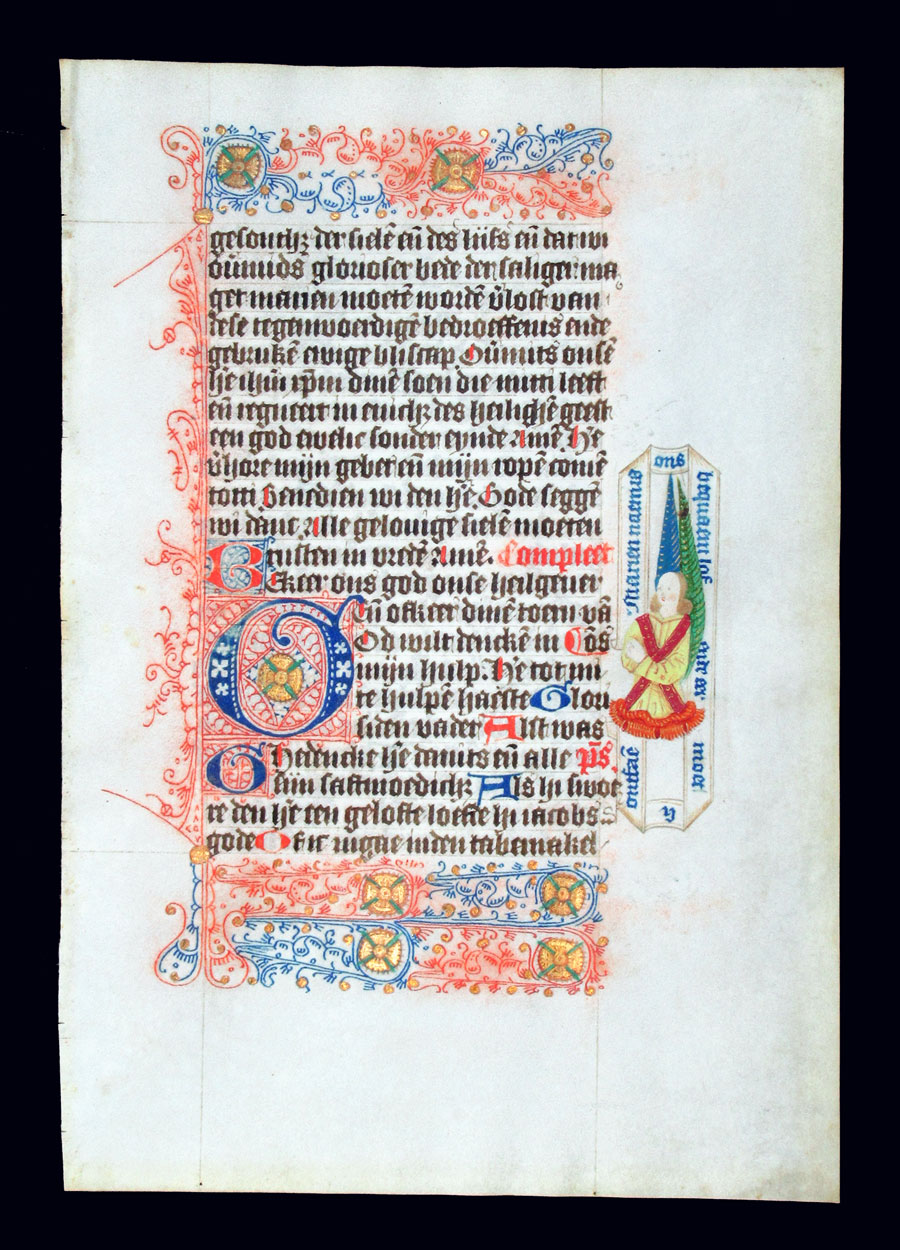 gesontheit der sielē eñ des lijfs eñ dat wi
ouermids glorioser bede der saliger ma
get marien moetē wordē v̄lost van
dese tegenwoerdigē bedroeffenis ende
gebrukē ewige bliscap Ouermits onsē
h̄e ih̄m xp̄m dinē soen die mitti leeft
eñ regneert in enich; des heilighē geest
een god ewelic sonder eynde Amē H̄e
v̄hore mijn gebet eñ mijn ropē comē
totti Benedien wi den h̄e Gode seggē
wi danc Alle gelouige sielen moeten
rusten in vredē Amē. Compleet
Bekeer ons god onse heilgeuer
Eñ ofkeer dinē toern vā
God wilt denckē in ōs
mijn hulp. H̄e tot mi
te hulpē haeste Glori
si den vader Alst was
Ghedencke h̄e dauits eñ alle p̄s
sijn saftmoedich; Als hi swoe
re den h̄e een gelofte loefte hi iacobs
gode Of ic inga inden tabernakel
ons
Marien naems
bequaem lof
ende w̄
moet
ontfaē
h̄